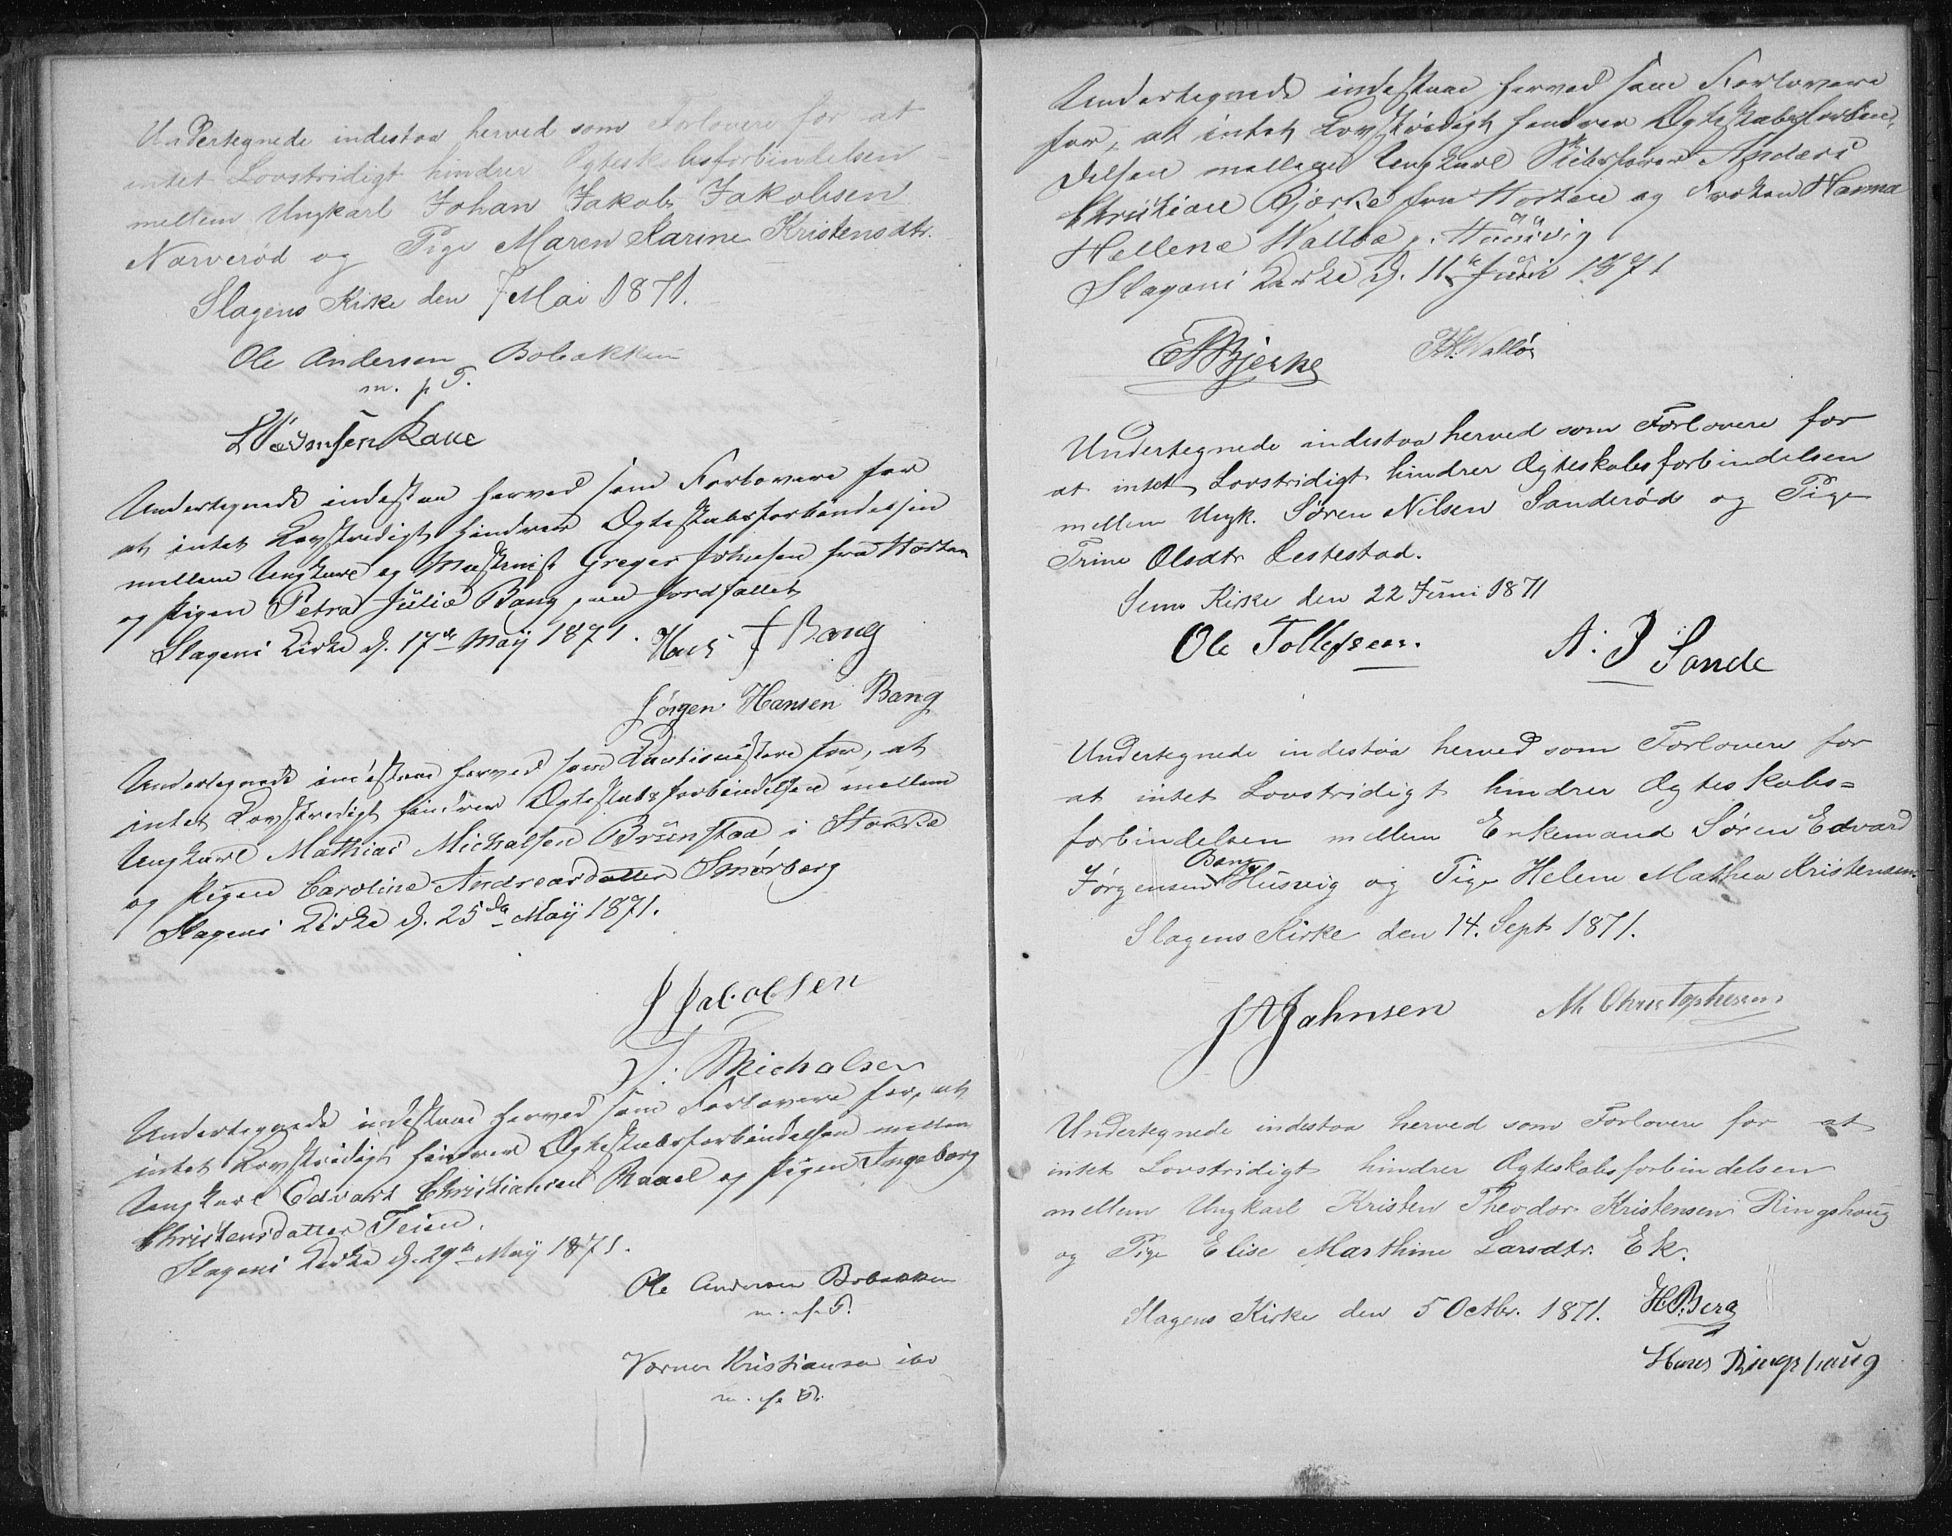 Undertegnede indestaa herved som Forlovere for at
intet Lovstridigt hindrer Ægteskabsforbindelsen
mellem Ungkarl Johan Jakob Jakobsen
Narverød og Pige Maren Karine Kristensdtr.
Slagens Kirke den 7 Mai 1871.
Ole Andersen Bobakken
m. p. P.
Undertegnede indestaae herved som Forlovere for
at intet Lovstridigt hindrer Ægteskabsforbindelsen
mellem Ungkarl og Maskinist Greger Johnsen fra Horten
og Pigen Petra Julie Bang paa Jordfaldet
Slagens Kirke d. 17de May 1871.
Hans J Bang
Jørgen Hansen Bang
Undertegnede indestaae herved som Cautionister for, at
intet Lovstridigt hindrer Ægteskabsforbindelsen mellem
Ungkarl Mathias Michalsen Brunstad i Stokke
og Pigen Caroline Andreasdatter Smørberg
Slagens Kirke d. 25de May 1871.
J Jacobsen
Michalsen
Undertegnede indestaae herved som Forlovere for, at
intet Lovstridigt hindrer Ægteskabsforbindelsen mellem
Ungkarl Edvart Christiansen Raael og Pigen Ingeborg
Christensdatter Teien.
Slagens Kirke d. 29de May 1871.
Ole Andersen Bobakken
m. p. P.
Værner Kristiansen ibd
m. p. P.
Undertegnede indestaae herved som Forlovere
for, at intet Lovstridigt hindrer Ægteskabsforbin-
delsen mellem Ungkarl Skibsfører Anders
Christian Bjerke fra Horten og Frøken Hanna
Hellene Walløe p. Huusvig
Slagens Kirke d. 11te Juni 1871
Bjerke
H. Walløe
Undertegnede indestaa herved som Forlovere for
at intet Lovstridigt hindrer Ægteskabsforbindelsen
mellem Ungk. Søren Nilsen Sanderød og Pige
Trine Olsdtr Lestestad.
Sems Kirke den 22 Juni 1871
Ole Tollefsen.
A. J Sande
Undertegnede indestaa herved som Forlovere for
at intet Lovstridigt hindrer Ægteskabs=
forbindelsen mellem Enkemand Søren Edvard
Jørgensen Bang Husvig og Pige Helene Mathea Kristensen.
Slagens Kirke den 14. Sept 1871.
J A Jahnsen
M Christophersen
Undertegnede indestaa herved som Forlovere for at
intet Lovstridigt hindrer Ægteskabsforbindelsen
mellem Ungkarl Kristen Theodor Kristensen Ringshoug
og Pige Elise Marthine Larsdtr. Ek.
Slagens Kirke den 5 Octbr. 1871.
H. Berg
Hans Ringshaug